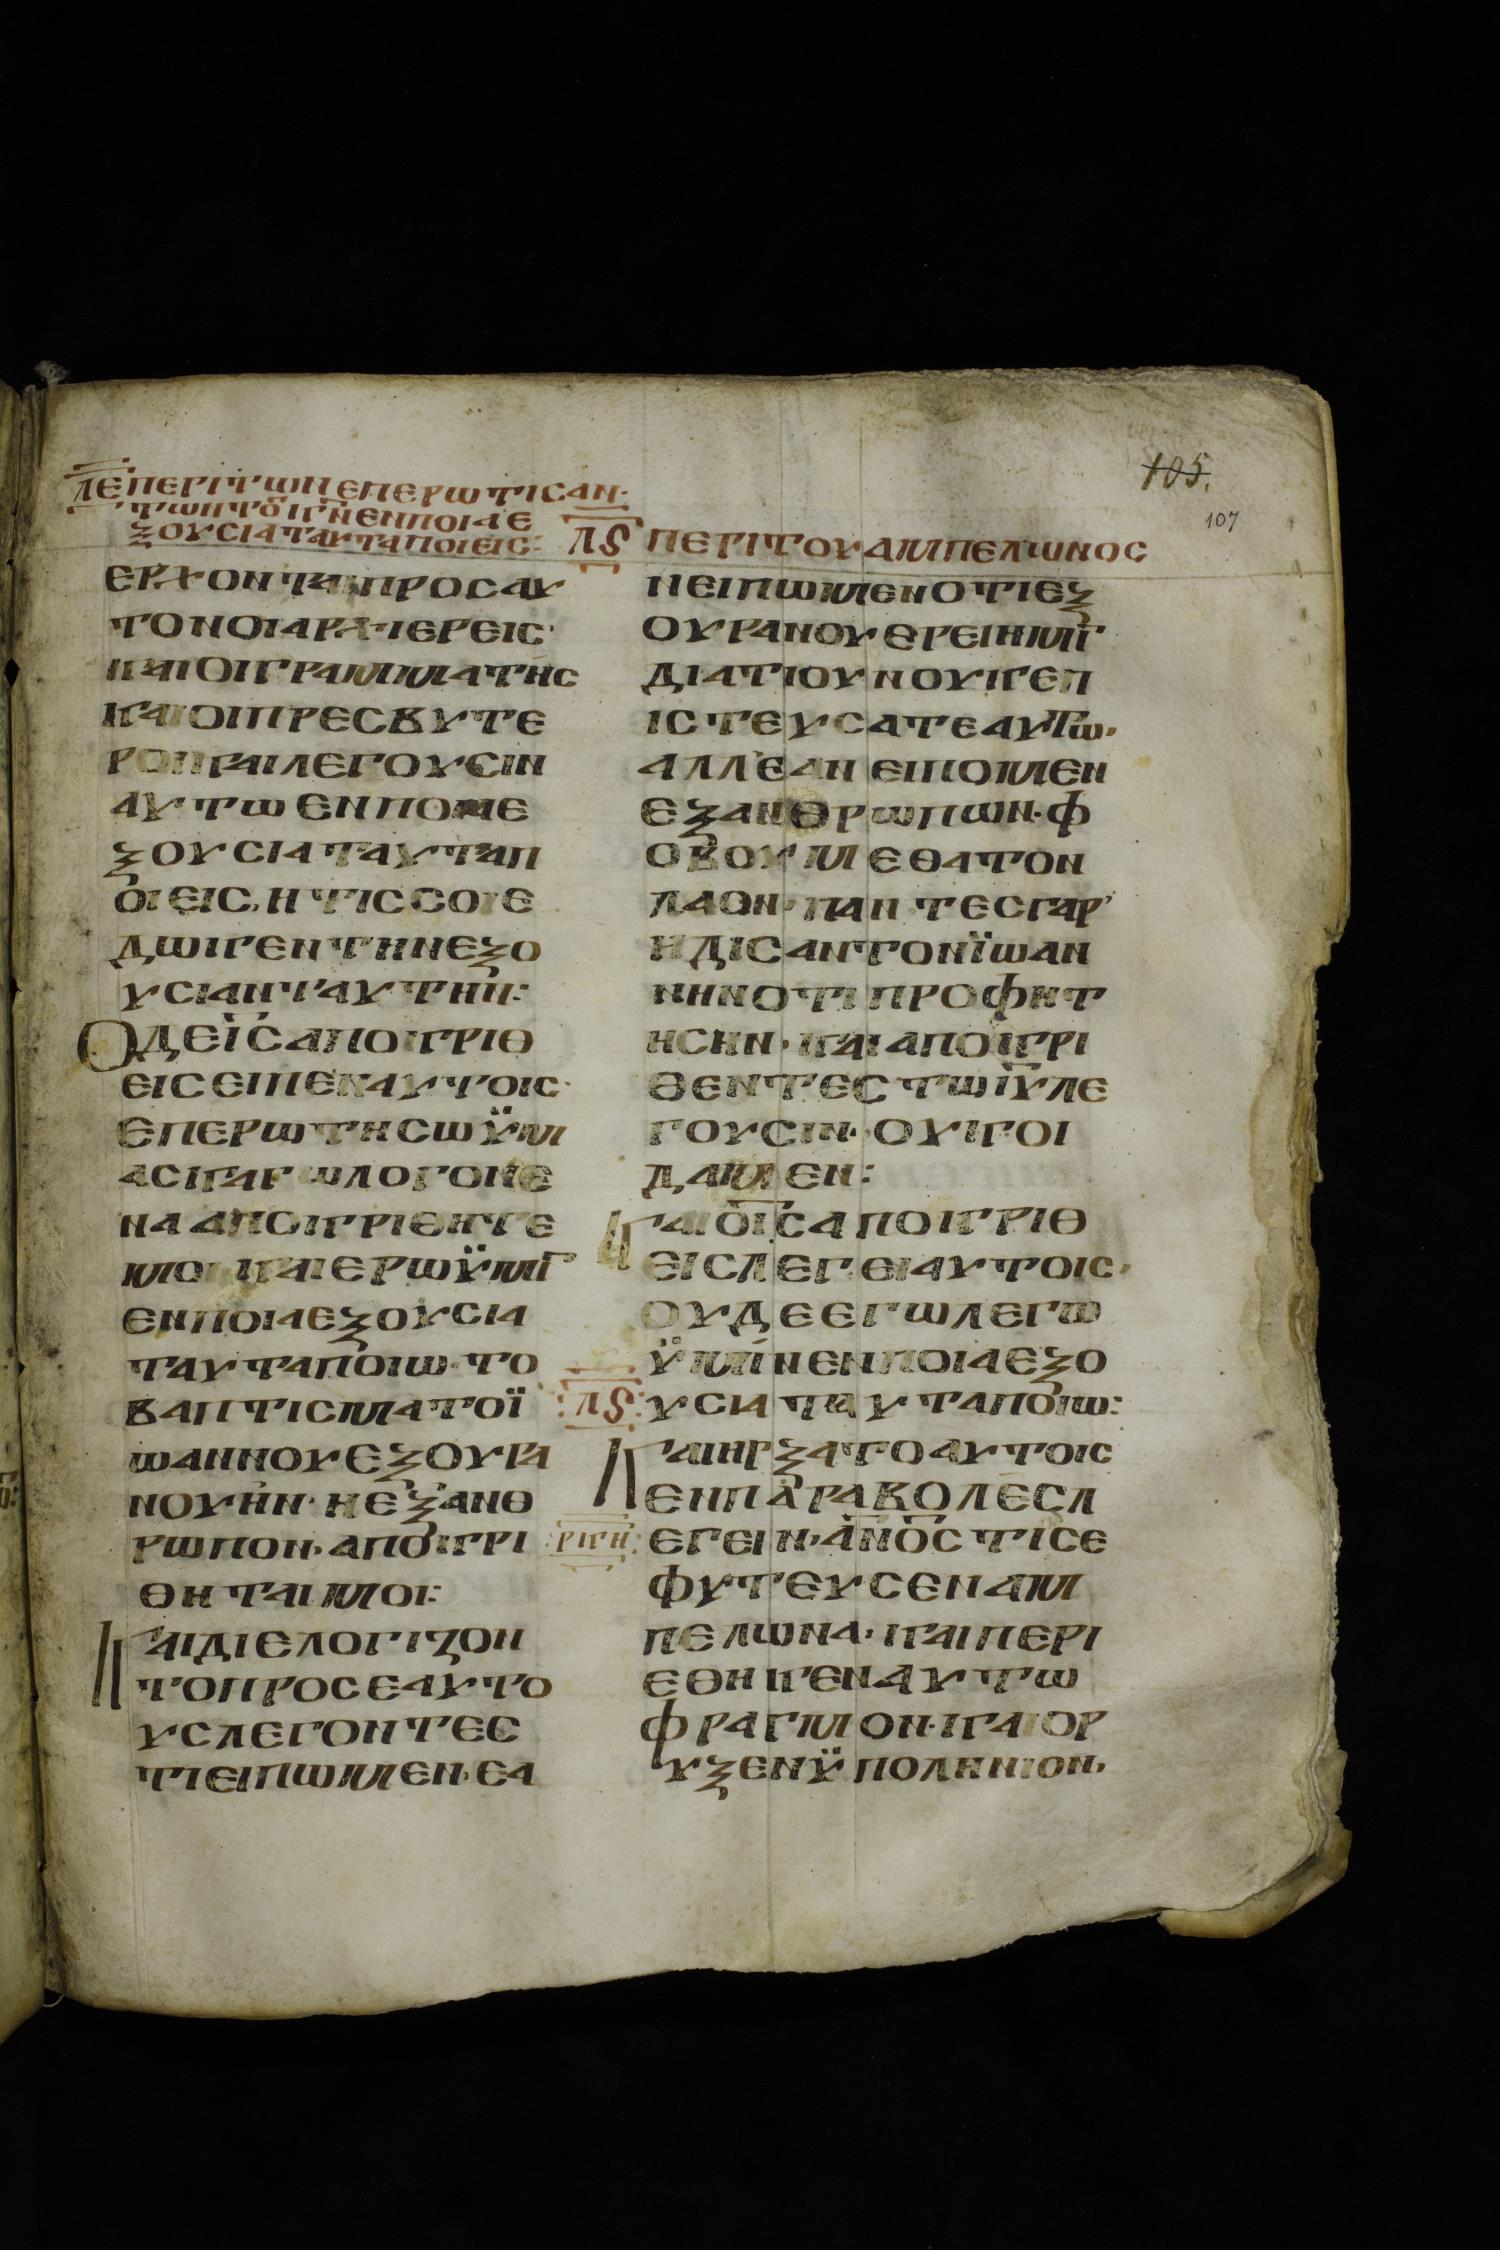 105.
107
ΛΕ ΠΕΡΙΤΩΝΕΠΕΡΩΤΙΣΑΝ·
ΤΩΝΤΟΙΓΝΕΝΠΟΙΑΕ
ΞΟΥСΙΑΤΑΥΤΑΠΟΙΕΙС:
ΕΡΧΟΝΤΑΙΠΡΟСΑΥ
ΤΟΝΟΙΑΡΧΙΕΡΕΙС·
ΚΑΙΟΙΓΡΑΜΜΑΤΗС
ΚΑΙΟΙΠΡΕСΒΥΤΕ
ΡΟΙΚΑΙΛΕΓΟΥСΙΝ
ΑΥΤΩΕΝΠΟΙΑΕ
ΞΟΥСΙΑΤΑΥΤΑΠ
ΟΙΕΙС, ΗΤΙССΟΙΕ
ΔΩΚΕΝΤΗΝΕΞΟ
ΥСΙΑΝΤΑΥΤΗΝ:
ΟΔΕΙ̅С̅ΑΠΟΚΡΙΘ
ΕΙСΕΙΠΕΝΑΥΤΟΙС·
ΕΠΕΡΩΤΗСΩΫΜ
ΑСΚΑΓΩΛΟΓΟΝΕ
ΝΑΑΠΟΚΡΙΘΗΤΕ
ΜΟΙΚΑΙΕΡΩΫΜΙ
ΕΝΠΟΙΑΕΞΟΥСΙΑ
ΤΑΥΤΑΠΟΙΩ·ΤΟ
ΒΑΠΤΙСΜΑΤΟΪ
ΩΑΝΝΟΥΕΞΟΥΡΑ
ΝΟΥΗΝ·ΗΕΞΑΝΘ
ΡΩΠΟΝ·ΑΠΟΚΡΙ
ΘΗΤΑΙΜΟΙ:
ΚΑΙΔΙΕΛΟΓΙΖΟΝ
ΤΟΠΡΟСΕΑΥΤΟ
ΥСΛΕΓΟΝΤΕС
ΤΙΕΙΠΩΜΕΝ·ΕΑ
Λς ΠΕΡΙΤΟΥΑΜΠΕΛΩΝΟС
ΝΕΙΠΩΜΕΝΟΤΙΕΞ
ΟΥΡΑΝΟΥΕΡΕΙΗΜΙ
ΔΙΑΤΙΟΥΝΟΥΚΕΠ
ΙСΤΕΥСΑΤΕΑΥΤΩ·
ΑΛΛΕΑΝΕΙΠΟΜΕΝ
ΕΞΑΝΘΡΩΠΩΝ·Φ
ΟΒΟΥΜΕΘΑΤΟΝ
ΛΑΟΝ·ΠΑΝΤΕСΓΑΡ
ΗΔΙСΑΝΤΟΝΪΩΑΝ
ΝΗΝΟΤΙΠΡΟΦΗΤ
ΗСΗΝ·ΚΑΙΑΠΟΚΡΙ
ΘΕΝΤΕСΤΩΙ̅Υ̅ΛΕ
ΓΟΥСΙΝ·ΟΥΚΟΙ
ΔΑΜΕΝ:
ΚΑΙΟΙ̅С̅ΑΠΟΚΡΙΘ
ΕΙСΛΕΓΕΙΑΥΤΟΙС·
ΟΥΔΕΕΓΩΛΕΓΩ
ΫΜΙΝΕΝΠΟΙΑΕΞΟ
Λς: ΥСΙΑΤΑΥΤΑΠΟΙΩ:
ΚΑΙΗΡΞΑΤΟΑΥΤΟΙС
ΕΝΠΑΡΑΒΟΛΕСΛ
ΡΚΗ: ΕΓΕΙΝ·Α̅Ν̅Ο̅С̅ΤΙСΕ
ΦΥΤΕΥСΕΝΑΜ
ΠΕΛΩΝΑ·ΚΑΙΠΕΡΙ
ΕΘΗΚΕΝΑΥΤΩ
ΦΡΑΓΜΟΝ·ΚΑΙΟΡ
ΥΞΕΝΫΠΟΛΗΝΙΟΝ·